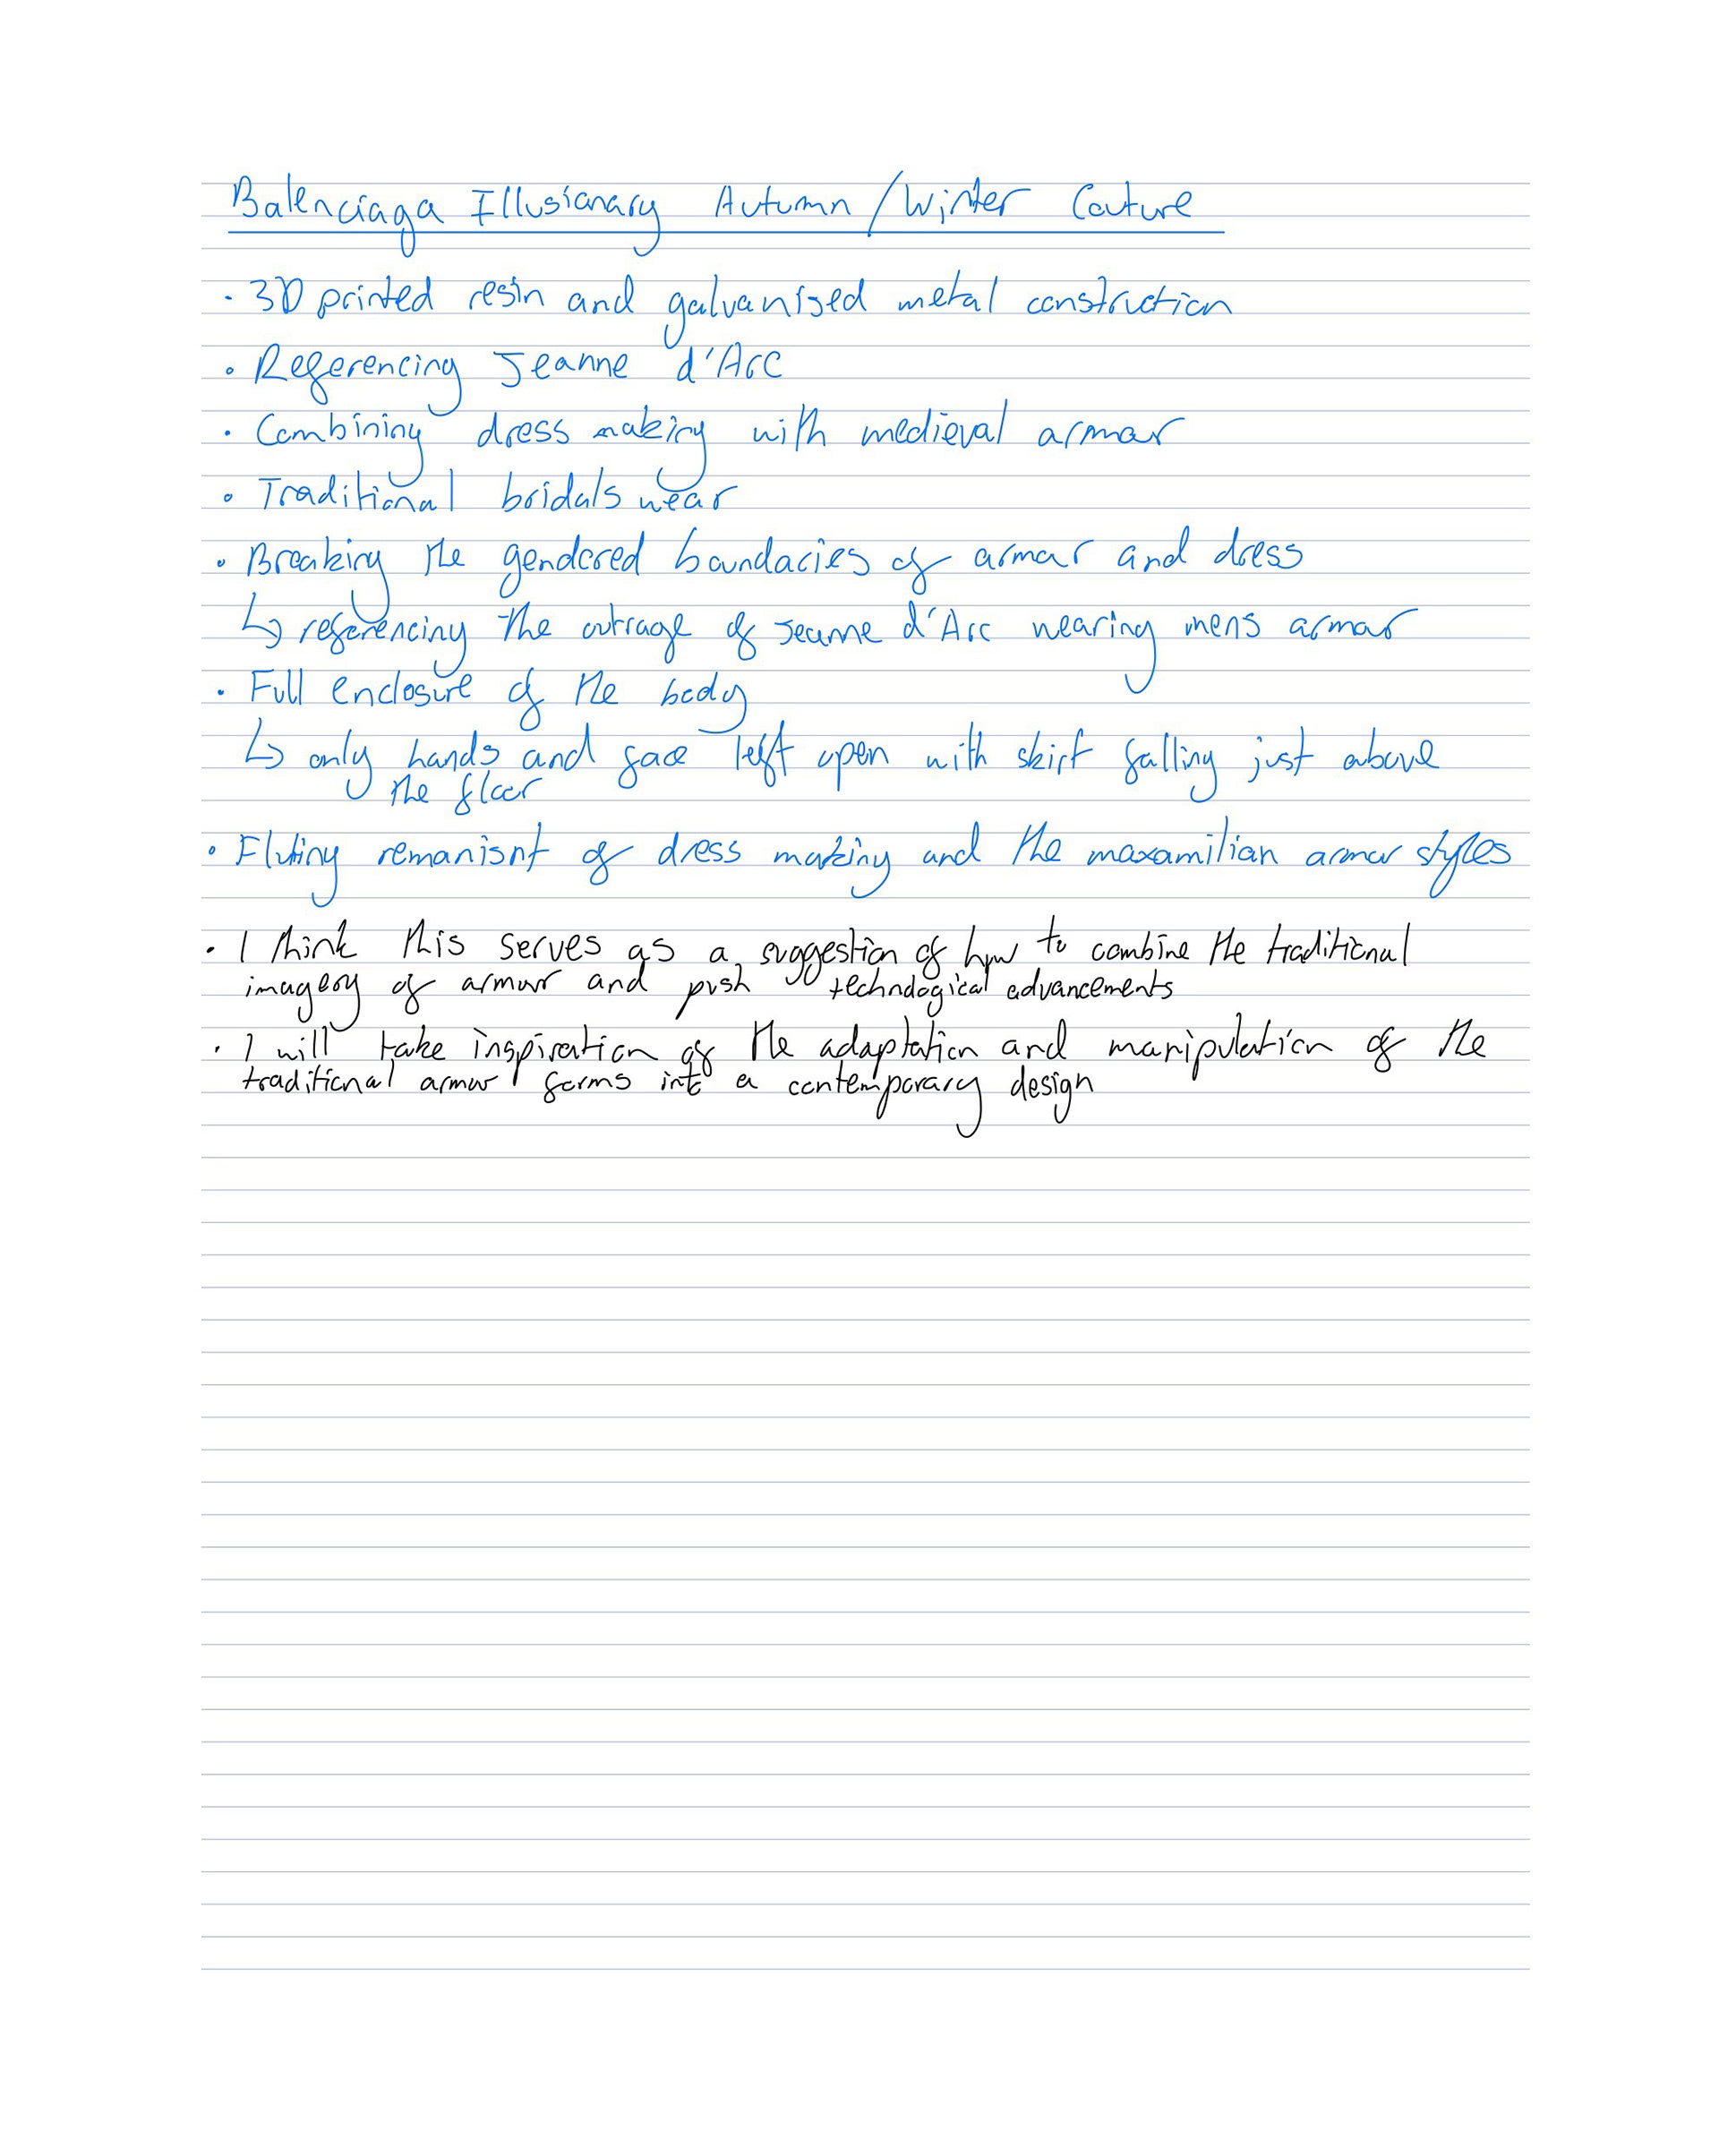 Balenciaga Illusionary Autumn/Winter Couture
• 3D printed resin and galvanised metal construction
• Referencing Jeanne d'Arc
• Combining dress making with medieval armor
• Traditional bridals wear
• Breaking the gendered boundaries of armor and dress
↳ referencing the outrage of Jeanne d'Arc wearing mens armor
• Full enclosure of the body
↳ only hands and face left open with skirt falling just above
the floor
• Fluting remanisnt of dress making and the maxamilian armor styles
• I think this serves as a suggestion of how to combine the traditional
imagery of armour and push technological advancements
• I will take inspiration of the adaptation and manipulation of the
traditional armour forms into a contemporary design